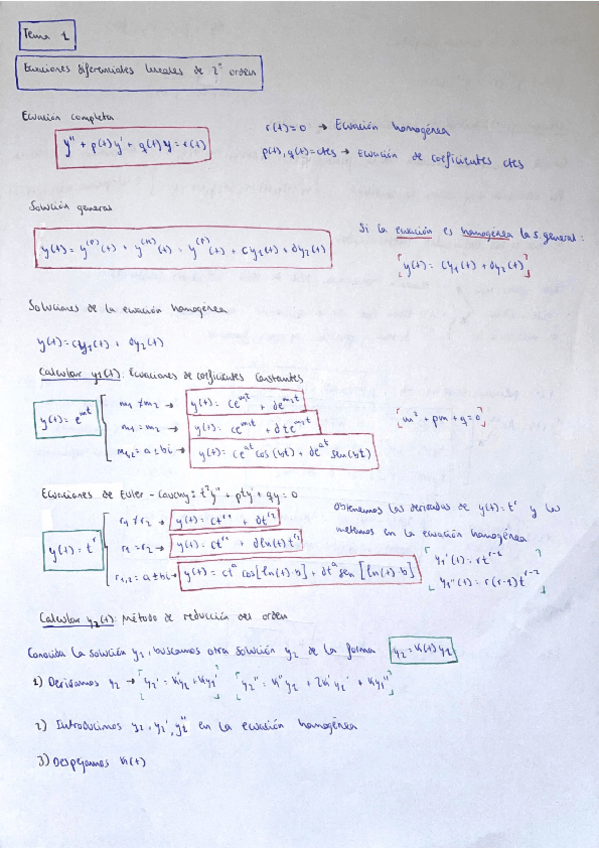 Tema 1
Ecuaciones diferenciales lineales de 2º orden
Ecuación completa
y'' + p(t) y' + q(t) y = r(t)
r(t)=0 → Ecuación homogénea
p(t), q(t)=ctes → Ecuación de coeficientes ctes
Solución general
Si la ecuación es homogénea la s. general:
y(t) = y⁽ᵖ⁾(t) + y⁽ʰ⁾(t) = y⁽ᵖ⁾(t) + cy₁(t) + dy₂(t)
y(t) = cy₁(t) + dy₂(t)
Soluciones de la ecuación homogénea
y(t) = cy₁(t) + dy₂(t)
Calcular y₁(t): Ecuaciones de coeficientes constantes
y(t) = e^mt
m₁ ≠ m₂ → y(t) = ce^m₁t + de^m₂t
m₁ = m₂ → y(t) = ce^m₁t + dte^m₁t
m₁,₂ = a ± bi → y(t) = ce^at cos(bt) + de^at sen(bt)
m² + pm + q = 0
Ecuaciones de Euler - Cauchy: t²y'' + pty' + qy = 0
y(t) = t^r
r₁ ≠ r₂ → y(t) = ct^r₁ + dt^r₂
r₁ = r₂ → y(t) = ct^r₁ + dln(t) t^r₁
r₁,₂ = a ± bi → y(t) = ct^a cos[ln(t)·b] + dt^a sen[ln(t)·b]
Obtenemos las derivadas de y(t) = t^r y las
metemos en la ecuación homogénea
y₁'(t) = rt^r-1
y₁''(t) = r(r-1)t^r-2
Calcular y₂(t): Método de reducción del orden
Conocida la solución y₁, buscamos otra solución y₂ de la forma y₂ = k(t) y₁
1) Derivamos y₂ → y₂' = k'y₁ + ky₁' y₂'' = k''y₁ + 2k'y₁' + ky₁''
2) Introducimos y₂, y₂', y₂'' en la ecuación homogénea
3) Despejamos k(t)